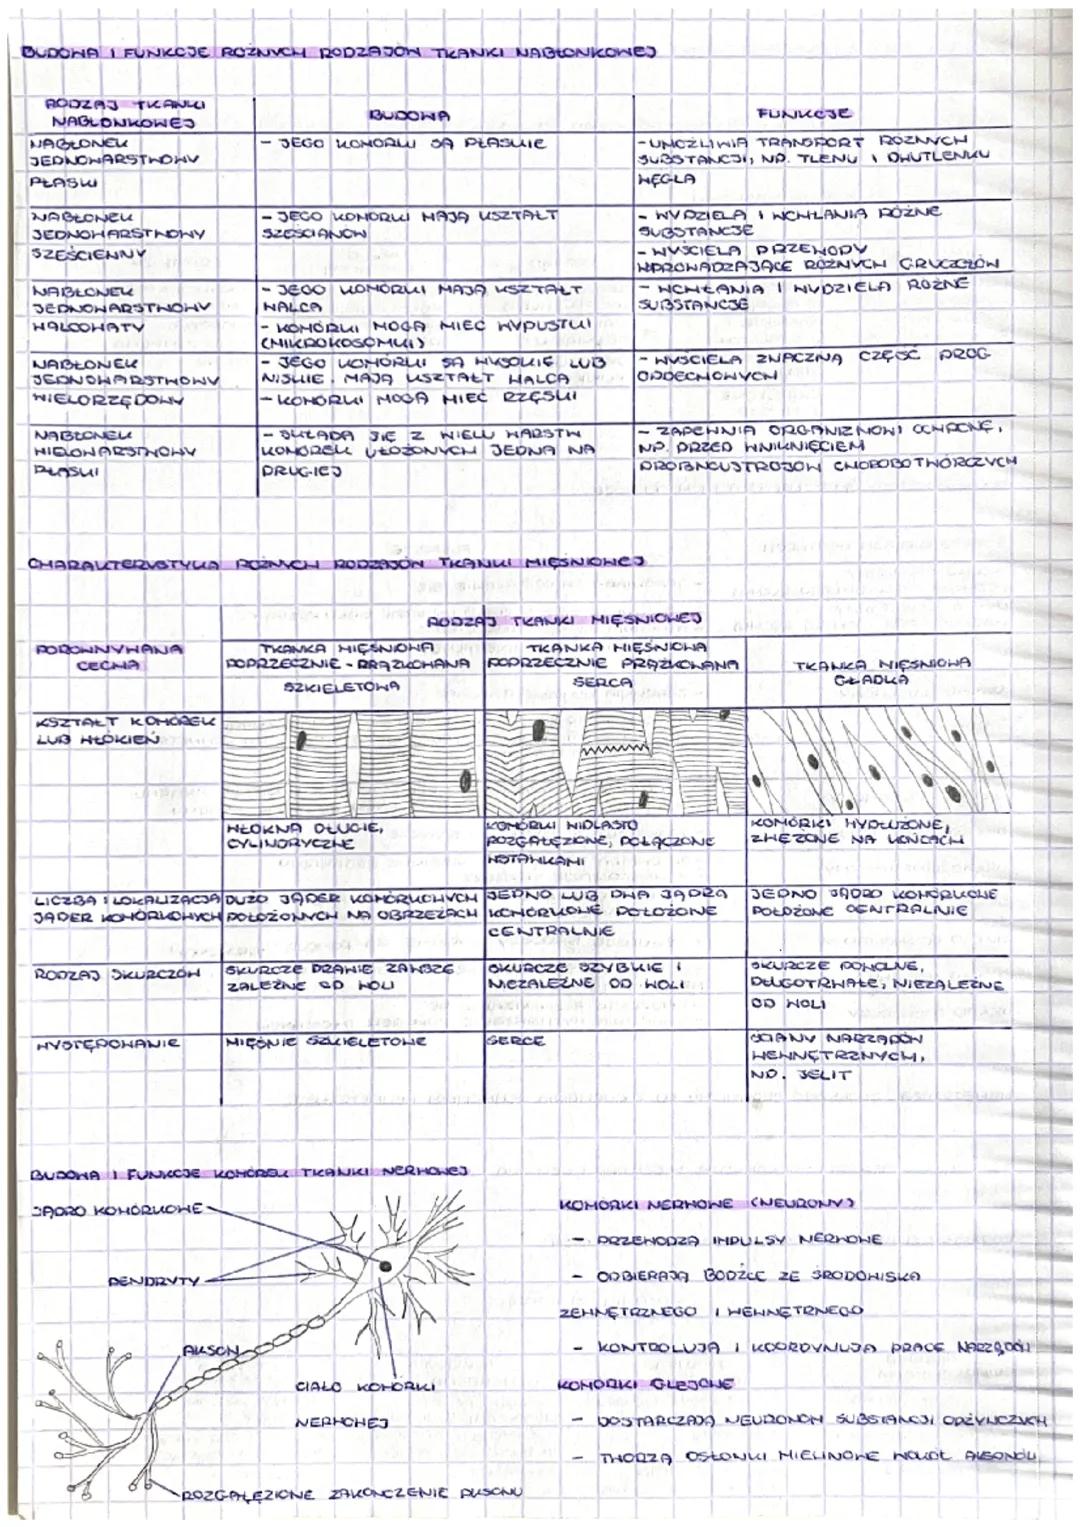 BUDOWA I FUNKCJE RÓŻNYCH RODZAJÓW TKANKI NABŁONKOWEJ
RODZAJ TKANKI
NABŁONKOWEJ
BUDOWA
FUNKCJE
NABŁONEK
JEDNOWARSTWOWY
PŁASKI
- JEGO KOMÓRKI SĄ PŁASKIE
- UMOŻLIWIA TRANSPORT RÓŻNYCH
SUBSTANCJI, NP. TLENU I DWUTLENKU
WĘGLA
NABŁONEK
JEDNOWARSTWOWY
SZEŚCIENNY
- JEGO KOMÓRKI MAJĄ KSZTAŁT
SZEŚCIANÓW
- WYDZIELA I WCHŁANIA RÓŻNE
SUBSTANCJE
- WYŚCIELA PRZEWODY
WPROWADZAJĄCE RÓŻNYCH GRUCZOŁÓW
NABŁONEK
JEDNOWARSTWOWY
WALCOWATY
- JEGO KOMÓRKI MAJĄ KSZTAŁT
WALCA
- KOMÓRKI MOGĄ MIEĆ WYPUSTKI
(MIKROKOSOMKI)
- WCHŁANIA I WYDZIELA RÓŻNE
SUBSTANCJE
NABŁONEK
JEDNOWARSTWOWY
WIELORZĘDOWY
- JEGO KOMÓRKI SĄ WYSOKIE LUB
NISKIE. MAJĄ KSZTAŁT WALCA
- KOMÓRKI MOGĄ MIEĆ RZĘSKI
- WYŚCIELA ZNACZNĄ CZĘŚĆ DRÓG
ODDECHOWYCH
NABŁONEK
WIELOWARSTWOWY
PŁASKI
- SKŁADA SIĘ Z WIELU WARSTW
KOMÓREK UŁOŻONYCH JEDNA NA
DRUGIEJ
- ZAPEWNIA ORGANIZMOWI OCHRONĘ,
NP. PRZED WNIKNIĘCIEM
DROBNOUSTROJÓW CHOROBOTWÓRCZYCH
CHARAKTERYSTYKA RÓŻNYCH RODZAJÓW TKANKI MIĘŚNIOWEJ
RODZAJ TKANKI MIĘŚNIOWEJ
PORÓWNYWANA
CECHA
TKANKA MIĘŚNIOWA
POPRZECZNIE - PRĄŻKOWANA
SZKIELETOWA
TKANKA MIĘŚNIOWA
POPRZECZNIE PRĄŻKOWANA
SERCA
TKANKA MIĘŚNIOWA
GŁADKA
KSZTAŁT KOMÓREK
LUB WŁÓKIEN
WŁÓKNA DŁUGIE,
CYLINDRYCZNE
KOMÓRKI WIDLASTO
ROZGAŁĘZIONE, POŁĄCZONE
WSTAWKAMI
KOMÓRKI WYDŁUŻONE,
ZWĘŻONE NA KOŃCACH
LICZBA I LOKALIZACJA
JĄDER KOMÓRKOWYCH
DUŻO JĄDER KOMÓRKOWYCH
POŁOŻONYCH NA OBRZEŻACH
JEDNO LUB DWA JĄDRA
KOMÓRKOWE POŁOŻONE
CENTRALNIE
JEDNO JĄDRO KOMÓRKOWE
POŁOŻONE CENTRALNIE
RODZAJ SKURCZÓW
SKURCZE PRAWIE ZAWSZE
ZALEŻNE OD WOLI
SKURCZE SZYBKIE I
NIEZALEŻNE OD WOLI
SKURCZE POWOLNE,
DŁUGOTRWAŁE, NIEZALEŻNE
OD WOLI
WYSTĘPOWANIE
MIĘŚNIE SZKIELETOWE
SERCE
ŚCIANY NARZĄDÓW
WEWNĘTRZNYCH,
NP. JELIT
BUDOWA I FUNKCJE KOMÓREK TKANKI NERWOWEJ
JĄDRO KOMÓRKOWE
DENDRYTY
AKSON
CIAŁO KOMÓRKI
NERWOWEJ
ROZGAŁĘZIONE ZAKOŃCZENIE AKSONU
KOMÓRKI NERWOWE (NEURONY)
- PRZEWODZĄ IMPULSY NERWOWE
- ODBIERAJĄ BODŹCE ZE ŚRODOWISKA
ZEWNĘTRZNEGO I WEWNĘTRNEGO
- KONTROLUJĄ I KOORDYNUJĄ PRACĘ NARZĄDÓW
KOMÓRKI GLEJOWE
- DOSTARCZAJĄ NEURONOM SUBSTANCJI ODŻYWCZYCH
- TWORZĄ OSŁONKI MIELINOWE WOKÓŁ AKSONÓW